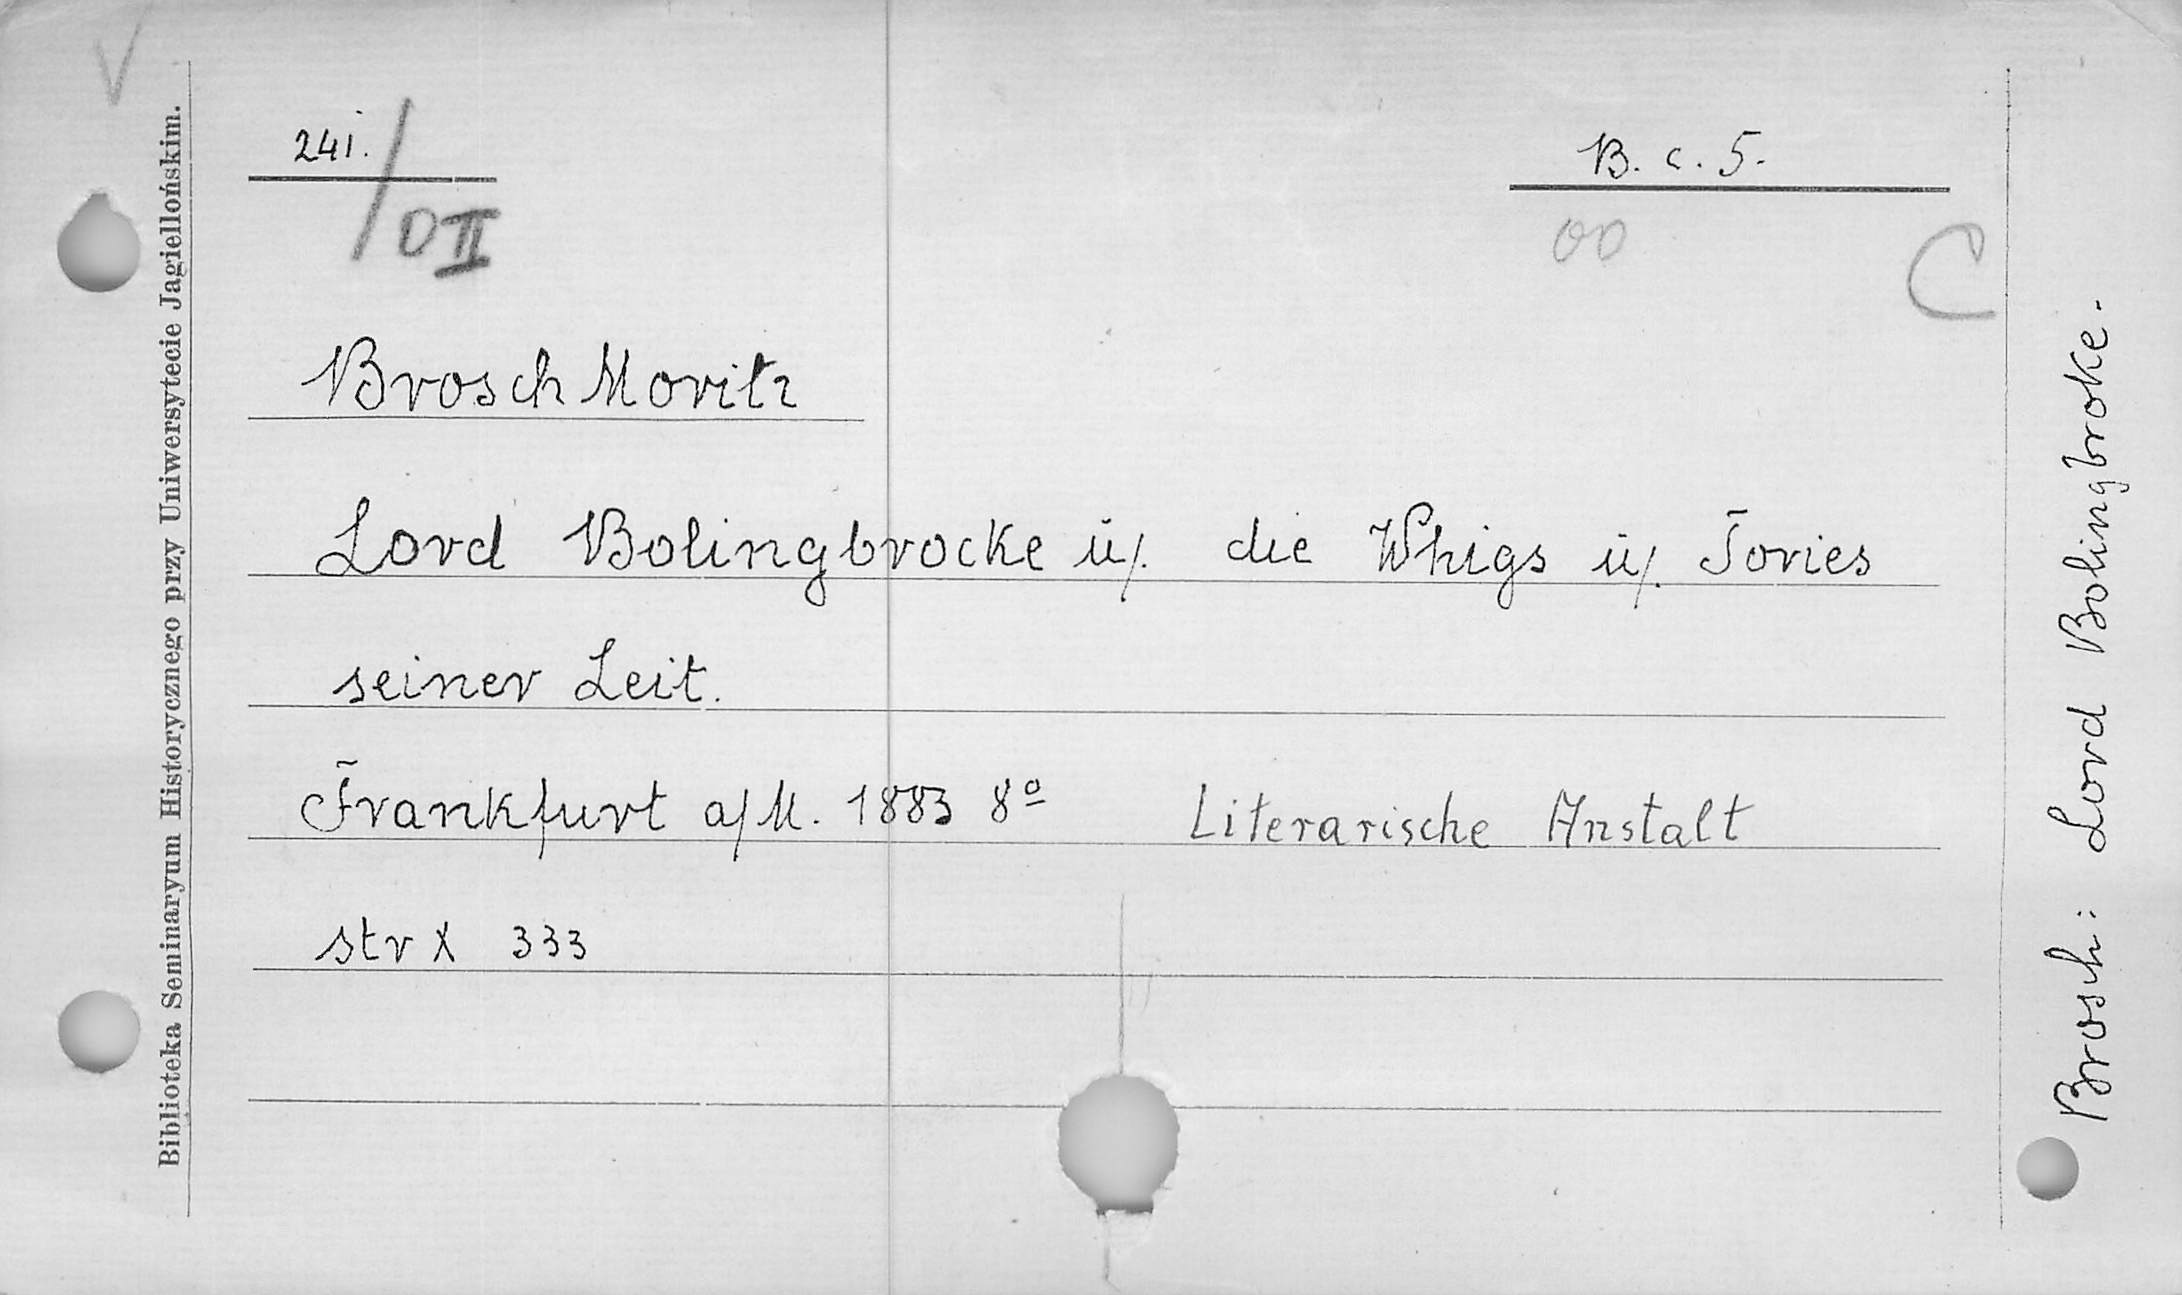 V
241.
/DII
B. c. 5.
00
C
Brosch Moritz
Lord Bolingbrocke u/. die Whigs u/. Tories
seiner Zeit.
Frankfurt a/M. 1883 8º Literarische Anstalt
str X 333
Biblioteka Seminaryum Historycznego przy Uniwersytecie Jagiellońskim.
Brosch: Lord Bolingbroke.